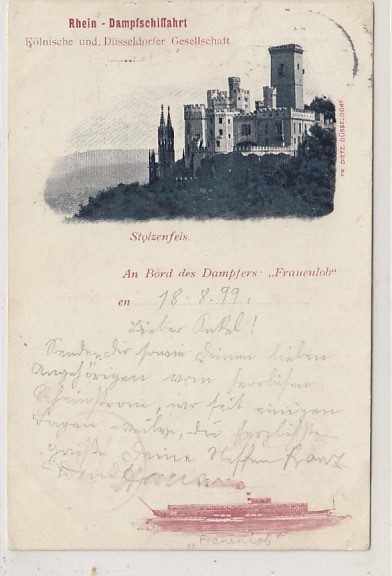 Rhein - Dampfschiffahrt
Kölnische und Düsseldorfer Gesellschaft
FR. DIETZ, DÜSSELDORF
Stolzenfels.
An Bord des Dampfers: „Frauenlob“
en 18. 8. 99.
Lieber Onkel!
Senden dir sowie deinen lieben
Angehörigen vom herrlichen
Rheinstrom, wo seit einigen
Tagen weilen, die herzlichsten
Grüße Deine Neffen Franz
und Hans
„Frauenlob“